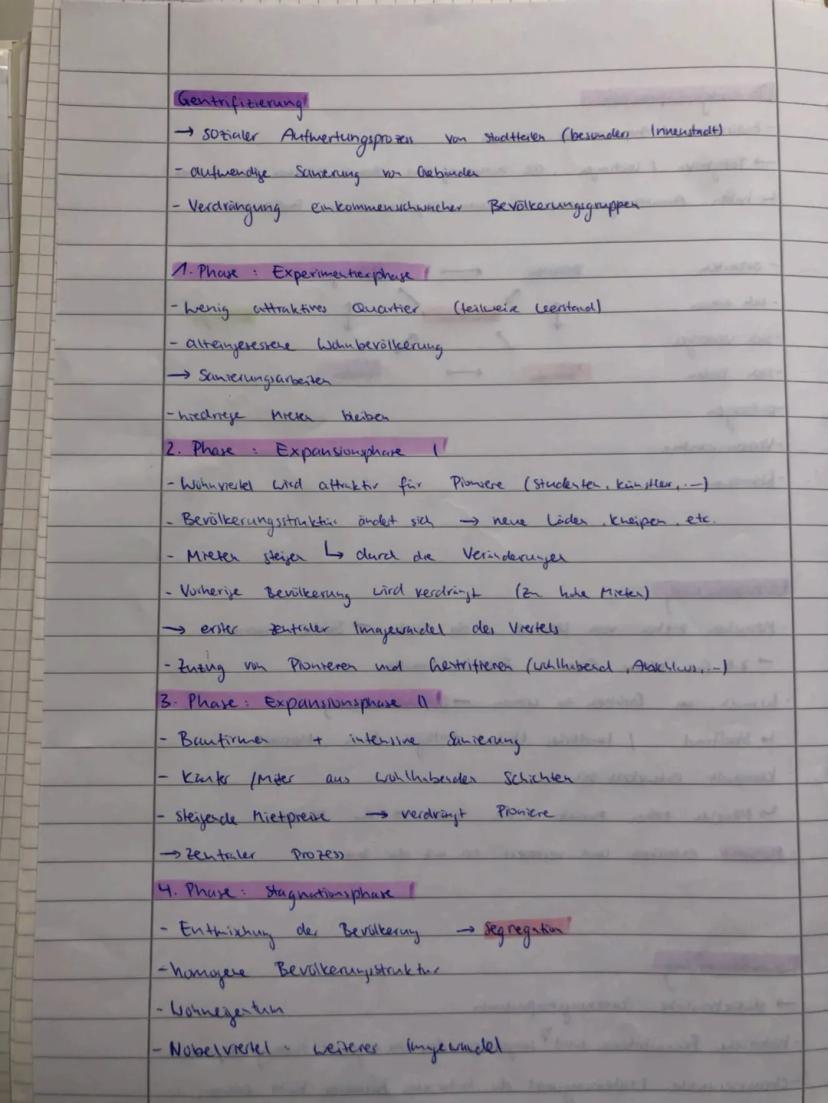 Gentrifizierung
→ sozialer Aufwertungsprozess von Stadtteilen (besonders Innenstadt)
- aufwendige Sanierung von Gebäuden
- Verdrängung einkommenschwacher Bevölkerungsgruppen
1. Phase : Experimentierphase
- wenig attraktives Quartier (teilweise Leerstand)
- alteingesessene Wohnbevölkerung
→ Sanierungsarbeiten
- niedrige Mieten bleiben
2. Phase : Expansionsphase I
- Wohnviertel wird attraktiv für Pioniere (Studenten, Künstler, ...)
- Bevölkerungsstruktur ändert sich → neue Läden, Kneipen, etc.
- Mieten steigen ↳ durch die Veränderungen
- Vorherige Bevölkerung wird verdrängt (zu hohe Mieten)
→ erster zentraler Imagewandel des Viertels
- Zuzug von Pionieren und Gentrifieren (wohlhabend, Abschluss, ...)
3. Phase : Expansionsphase II
- Baufirmen + intensive Sanierung
- Käufer / Mieter aus wohlhabenden Schichten
- steigende Mietpreise → verdrängt Pioniere
→ Zentraler Prozess
4. Phase : Stagnationsphase
- Entmischung der Bevölkerung → Segregation
- homogene Bevölkerungsstruktur
- Wohneigentum
- Nobelviertel - weiterer Imagewandel